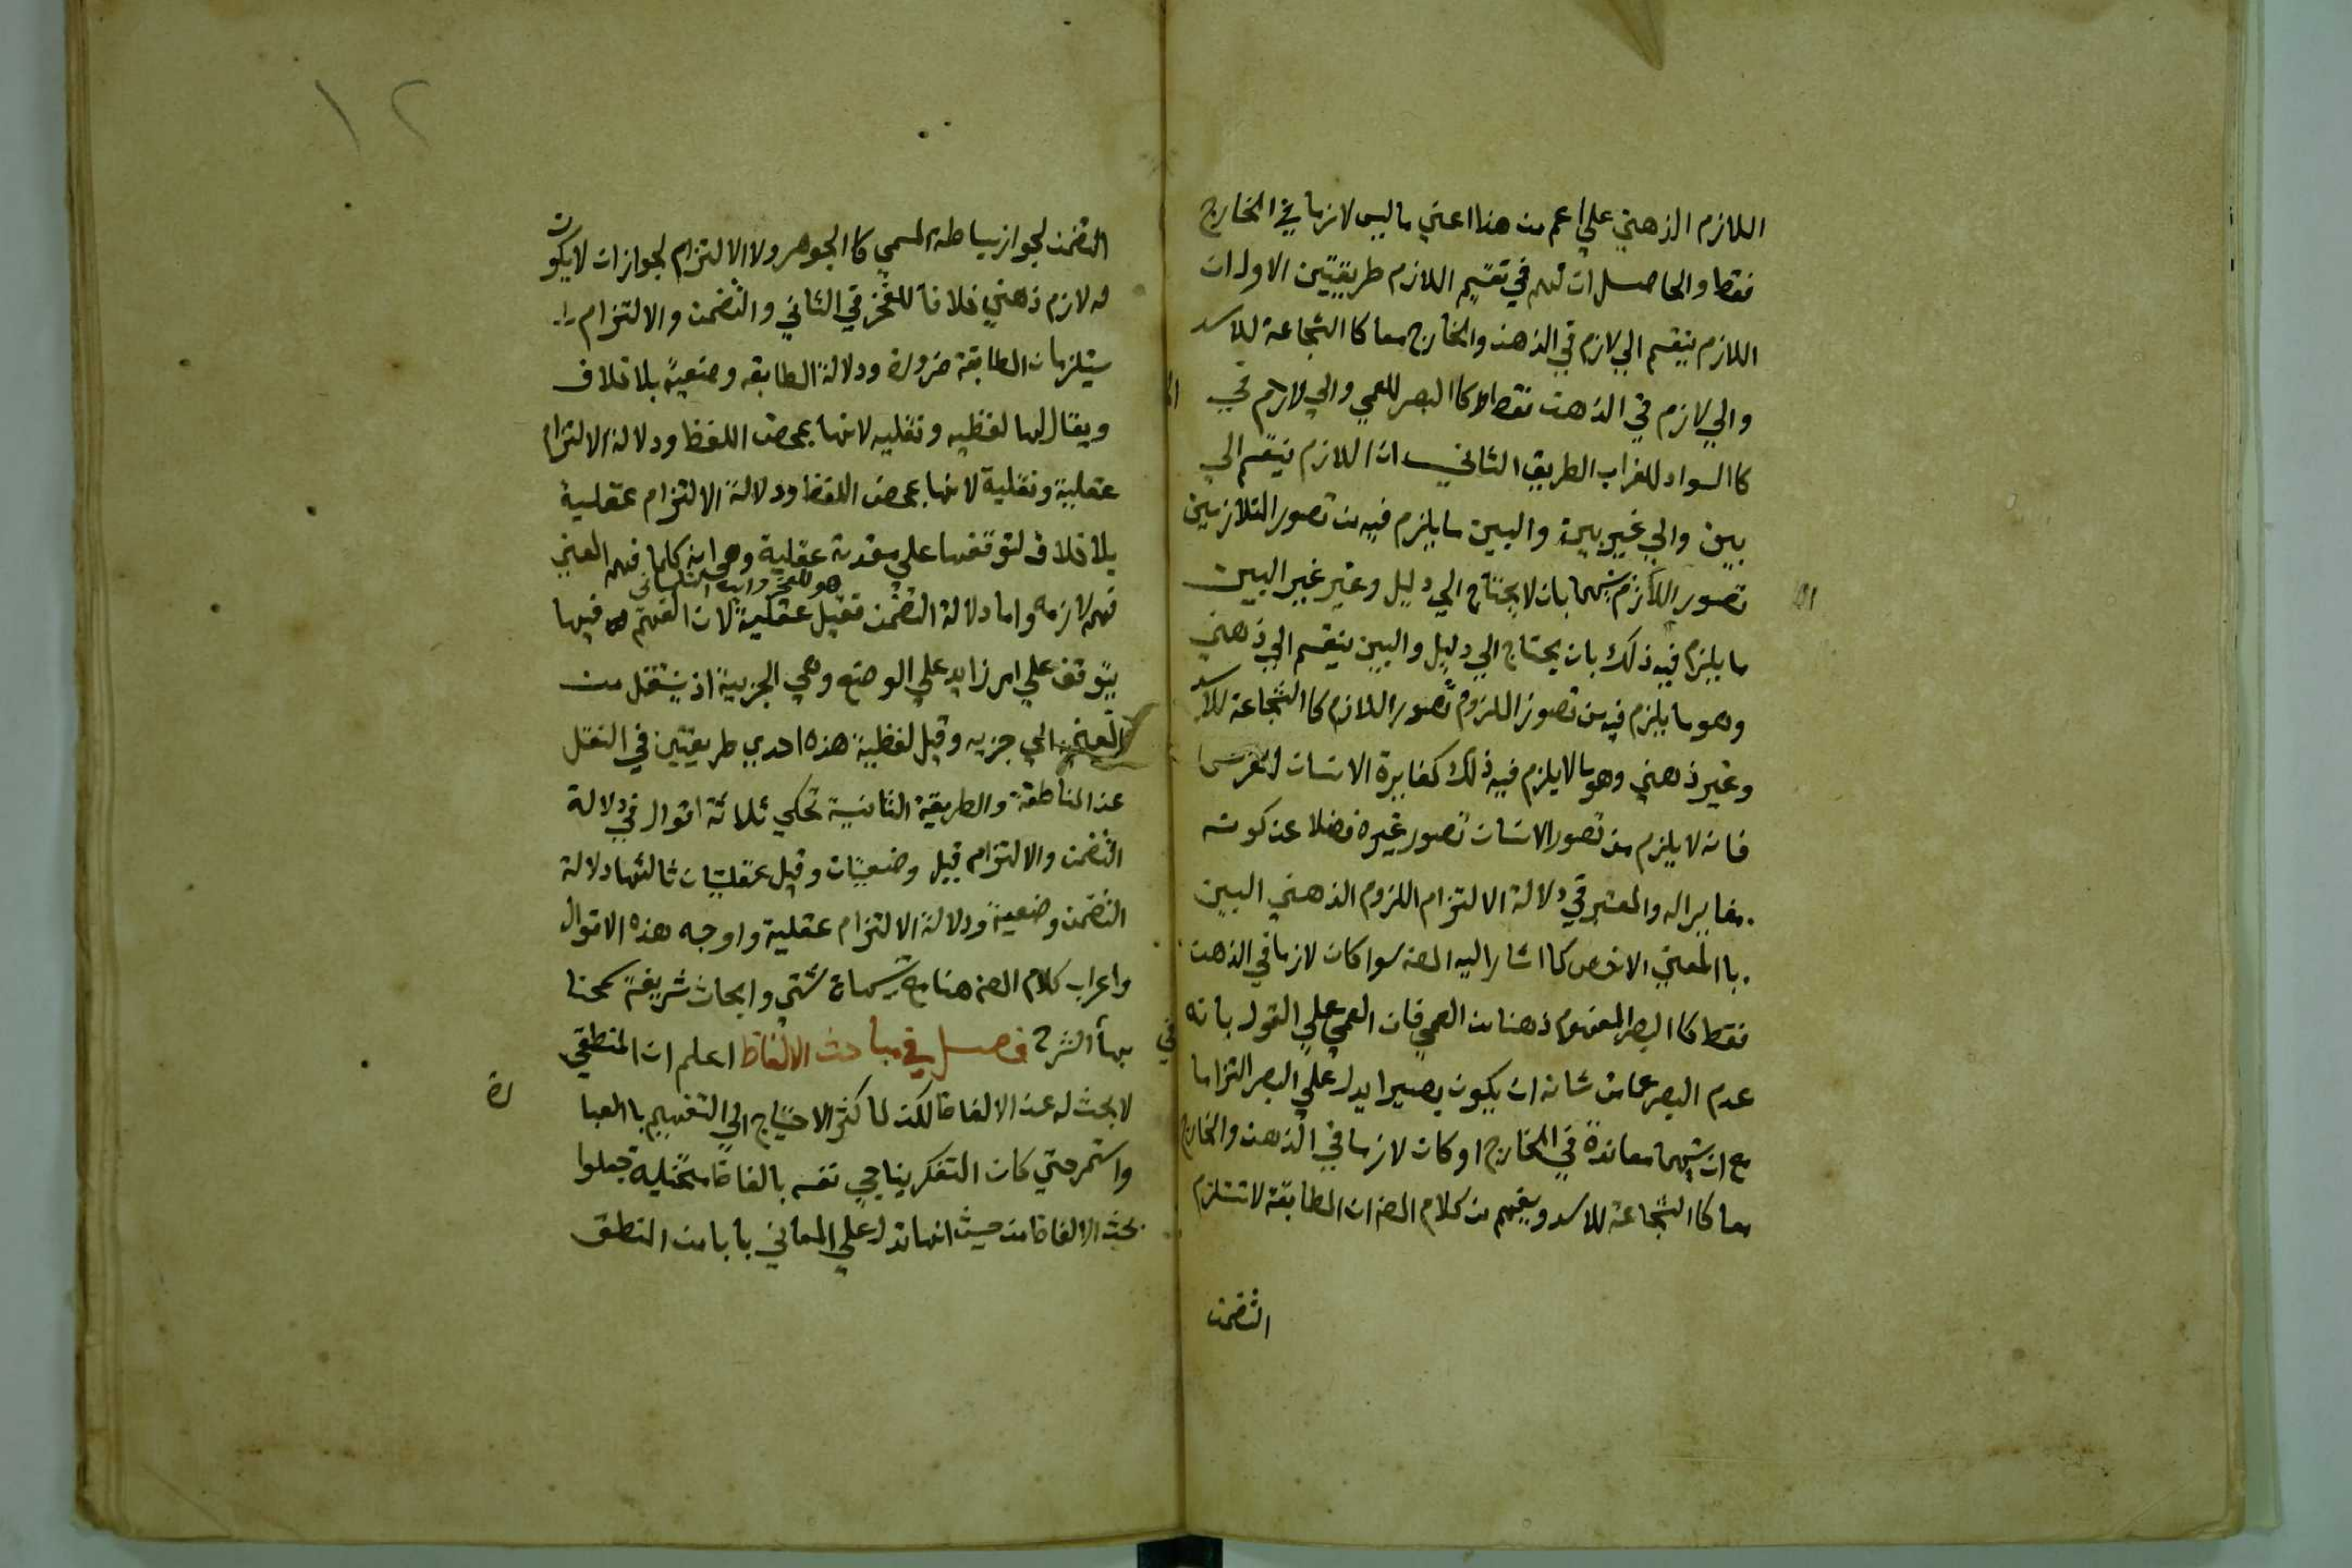 اللازم الذهني علي اعم من هذا اعني ما ليس لازما في الخارج
فقط والحاصل ان لهم في تقسيم اللازم طريقتين الاول ان
اللازم ينقسم الي لازم في الذهن والخارج معا كا الشجاعة للاسد
والي لازم في الذهن فقط كا البصر للعمي والي لازم في
كا السواد للغراب الطريق الثاني ان اللازم ينقسم الي
بين والي غير بين والبين ما يلزم فيه من تصور المتلازمين
تصور اللازم بينهما بان لا يحتاج الي دليل وغير غير البين
ما يلزم فيه ذلك بان يحتاج الي دليل والبين ينقسم الي ذهني
وهو ما يلزم فيه من تصور الملزوم تصور اللازم كا الشجاعة للاسد
وغير ذهني وهو ما لا يلزم فيه ذلك كمغايرة الانسان للفرس
فانه لا يلزم من تصور الانسان تصور غيره فضلا عن كونه
مغايرا له والمعتبر في دلالة الالتزام اللزوم الذهني البين
با المعني الاخص كما اشار اليه المص سوا كان لازما في الذهن
فقط كا البصر المفهوم ذهنا من العمي فان العمي علي القول بانه
عدم البصر عما من شانه ان يكون بصيرا يدل علي البصر التزاما
مع ان بينهما معاندة في الخارج او كان لازما في الذهن والخارج
معا كا الشجاعة للاسد ويفهم من كلام المص ان المطابقة لا تستلزم
التضمن
١٢
التضمن لجواز بساطة المسمي كا الجوهر ولا الالتزام لجواز ان لا يكون
له لازم ذهني خلافا للفخر في الثاني والتضمن والالتزام
يستلزمان المطابقة ضرورة ودلالة المطابقه وضعية بلا خلاف
ويقال لها لفظيه ونقليه لانها بمحض اللفظ ودلالة الالتزام
عقلية ونقلية لانها بمحض اللفظ ودلالة الالتزام عقلية
بلا خلاف لتوقفها علي مقدمة عقلية وهي انه كلما فهم المعني
هو للفخر وابن التلمساني
فهم لازمه واما دلالة التضمن فقيل عقلية لان الفهم فيها
يتوقف علي امر زايد علي الوضع وهي الجزيية اذ ينتقل من
المعني الي جزيه وقيل لفظية هذه احدي طريقتين في النقل
عن المناطقة والطريقة الثانية تحكي ثلاثة اقوال في دلالة
التضمن والالتزام قيل وضعيتان وقيل عقليتان ثالثها دلالة
التضمن وضعية ودلالة الالتزام عقلية واوجه هذه الاقوال
واعراب كلام المص هنا مع تنبيهات شتي وابحاث شريفة سمحنا
بها الشرح فصل في مباحث الالفاظ اعلم ان المنطقي
لا بحث له عن الالفاظ لكن لما كثر الاحتياج الي التفهيم با العبا
رة
واستمر حتي كان المتفكر يناجي نفسه بالفاظ متخيلة جعلوا
بحث الالفاظ من حيث انها تدل علي المعاني بابا من المنطق